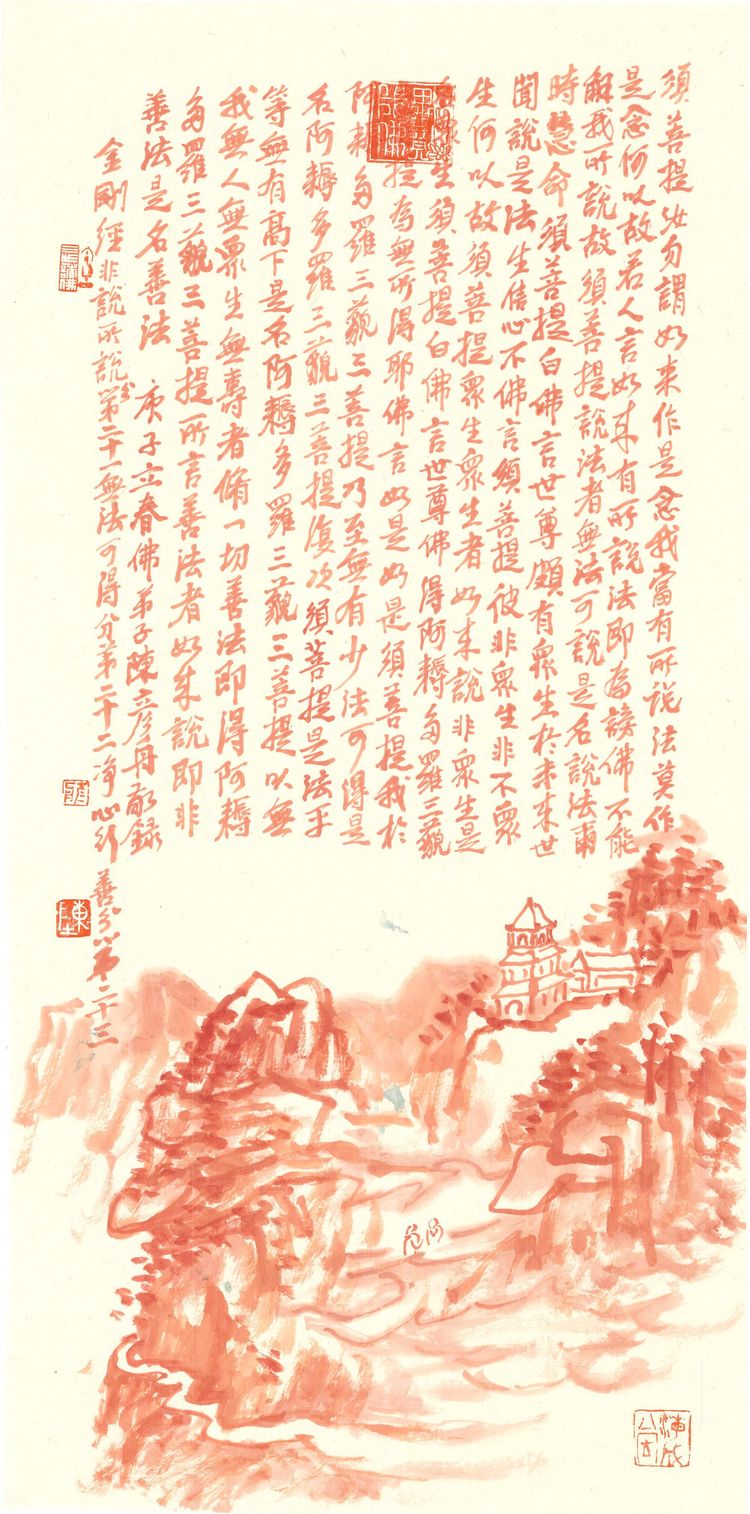 須菩提汝勿謂如来作是念我當有所说法莫作
是念何以故若人言如来有所說法即為謗佛不能
解我所說故須菩提說法者無法可說是名說法爾
時慧命須菩提白佛言世尊頗有衆生於未来世
聞說是法生信心不佛言須菩提彼非衆生非不衆
生何以故須菩提衆生衆生者如来說非衆生是
衆生須菩提白佛言世尊佛得阿耨多羅三藐
提為無所得耶佛言如是如是須菩提我於
阿耨多羅三藐三菩提乃至無有少法可得是
名阿耨多羅三藐三菩提復次須菩提是法平
等無有高下是名阿耨多羅三藐三菩提以無
我無人無衆生無壽者脩一切善法即得阿耨
多羅三藐三菩提所言善法者如来說即非
善法是名善法 庚子立春佛弟子陳彦丹敬録
金剛經非說所說分第二十一無法可得分第二十二淨心行善分第二十三